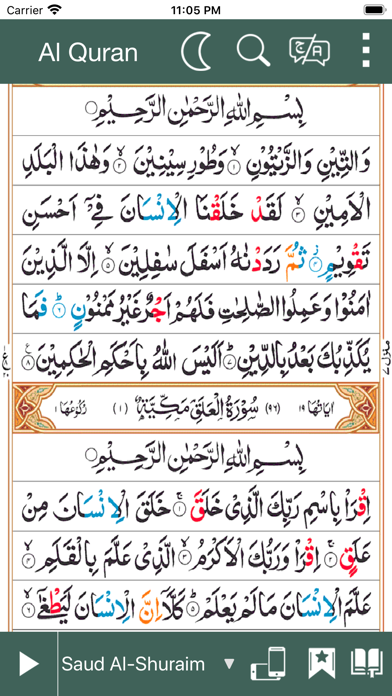 Carrier 11:05 PM
Al Quran
بِسْمِ اللّٰهِ الرَّحْمٰنِ الرَّحِيْمِ
وَالتِّيْنِ وَالزَّيْتُوْنِ ۙ﴿۱﴾ وَطُوْرِ سِيْنِيْنَ ۙ﴿۲﴾ وَهٰذَا الْبَلَدِ
الْاَمِيْنِ ۙ﴿۳﴾ لَقَدْ خَلَقْنَا الْاِنْسَانَ فِيْۤ اَحْسَنِ
تَقْوِيْمٍ ۫﴿۴﴾ ثُمَّ رَدَدْنٰهُ اَسْفَلَ سٰفِلِيْنَ ۙ﴿۵﴾ اِلَّا الَّذِيْنَ
اٰمَنُوْا وَعَمِلُوا الصّٰلِحٰتِ فَلَهُمْ اَجْرٌ غَيْرُ مَمْنُوْنٍ ﴿۶﴾ فَمَا
يُكَذِّبُكَ بَعْدُ بِالدِّيْنِ ﴿۷﴾ اَلَيْسَ اللّٰهُ بِاَحْكَمِ الْحٰكِمِيْنَ ﴿۸﴾
اٰيَاتُهَا ۱۹ (۹۶) سُوْرَةُ الْعَلَقِ مَكِّيَّةٌ (۱) رُكُوْعُهَا ۱
بِسْمِ اللّٰهِ الرَّحْمٰنِ الرَّحِيْمِ
اِقْرَاْ بِاسْمِ رَبِّكَ الَّذِيْ خَلَقَ ۚ﴿۱﴾ خَلَقَ الْاِنْسَانَ مِنْ
عَلَقٍ ۚ﴿۲﴾ اِقْرَاْ وَرَبُّكَ الْاَكْرَمُ ۙ﴿۳﴾ الَّذِيْ عَلَّمَ بِالْقَلَمِ ۙ﴿۴﴾
عَلَّمَ الْاِنْسَانَ مَا لَمْ يَعْلَمْ ؕ﴿۵﴾ كَلَّاۤ اِنَّ الْاِنْسَانَ لَيَطْغٰۤى ۙ﴿۶﴾
Saud Al-Shuraim